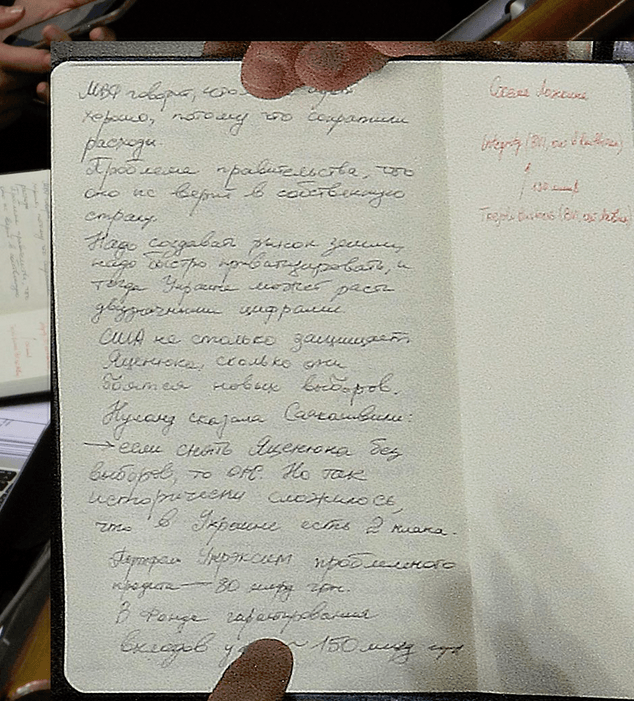 МВФ говорит, что
хорошо, потому что сократили
расходы.
Проблема правительства, что
оно не верит в собственную
страну
Надо создавать рынок земли,
надо быстро приватизировать, и
тогда Украина может расти
двузначными цифрами.
США не столько защищает
Яценюка, сколько они
боятся новых выборов.
Нуланд сказала Саакашвили:
→ если снять Яценюка без
выборов, то ок. Но так
исторически сложилось,
что в Украине есть 2 клана.
Портфель Укрэксим проблемного
кредита — 80 млрд грн.
В Фонде гарантирования
вкладов ~ 150 млрд грн
Схема
Integrity (BVI,
↑
150 млн $
(BVI,